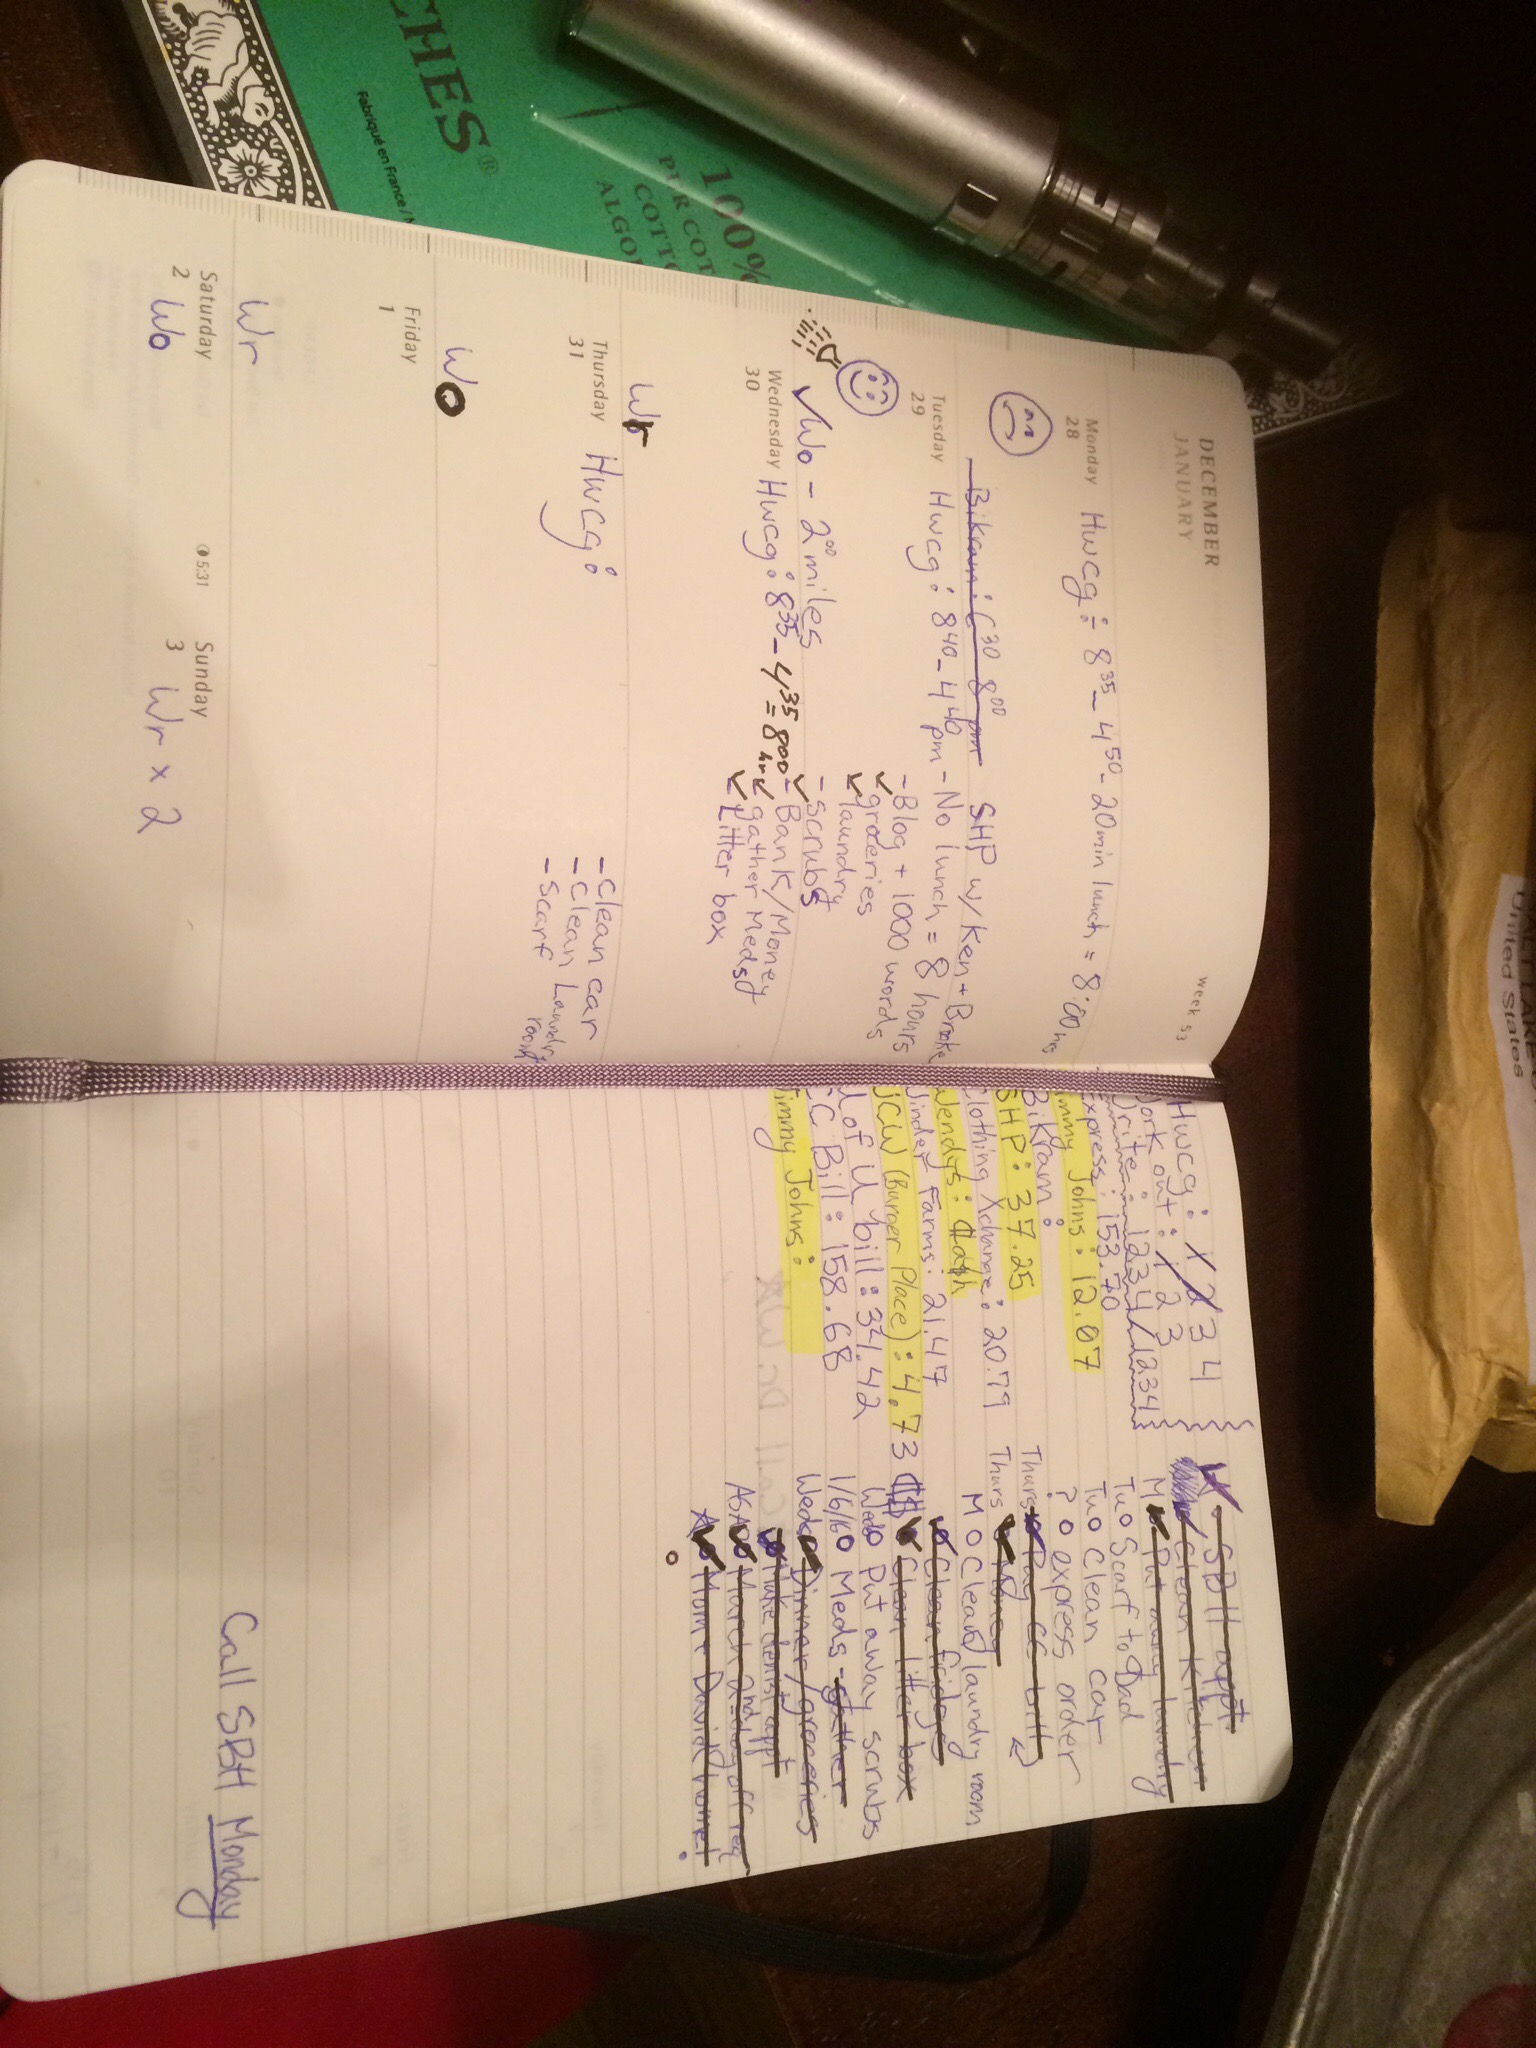 CHES®
Fabriqué en France/
100%
COTT
ALGO
United States
DECEMBER
JANUARY
week 53
Monday
28
Hwcg: 8³⁵ - 4⁵⁰ - 20min lunch = 8:00 hrs
Bikram: 6³⁰ 8⁰⁰ pm SHP w/ Ken + Brooke
Tuesday
29
Hwcg: 8⁴⁰ - 4⁴⁰ pm - No lunch = 8 hours
- Blog + 1000 words
groceries
laundry
✓ Wo - 2⁰⁰ miles
- Scrubs
Wednesday
30
Hwcg: 8³⁵ - 4³⁵ = 8⁰⁰ hr
- Bank/Money
gather Meds
Litter box
Wr
Thursday
31
Hwcg:
- Clean car
- Clean Laundry room
- Scarf
Wo
Friday
1
Wr
Saturday
2
Wo
5:31
Sunday
3
Wr x 2
Hwcg: 1 2 3 4
Work out: 1 2 3
Write: 1234/1234
Express: 153.70
Jimmy Johns: 12.07
Bikram:
SHP: 37.25
Clothing Xchange: 20.79
Wendys: Cash
Winder Farms: 21.47
JCW (Burger Place): 4.73
U of U bill: 34.42
CC Bill: 158.68
Jimmy Johns:
SBH appt
Clean Kitchen
M Put away laundry
Tu O Scarf to Dad
Tu O Clean car
? O express order
Thurs Pay CC bill
Thurs Money
M O Clean laundry room
Clean fridge
Clean litter box
Wed O Put away scrubs
1/6/16 O Meds - gather
Wed Dinner/groceries
Make dentist appt
ASAP March 2nd day off req
Mom + David home!
Call SBH Monday